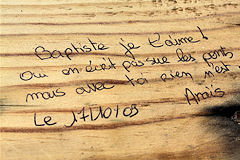 Baptiste je t'aime!
Oui on écrit pas sur les ponts
mais avec toi rien n'est
Anaïs
Le 17/10/09